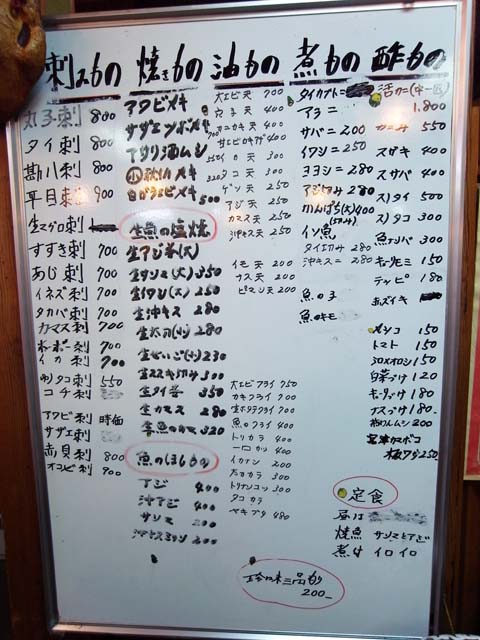 刺みもの
丸子刺 800
タイ刺 800
勘八刺 900
平目刺 900
生マグロ刺
すずき刺 700
あじ刺 700
イネズ刺 700
タカバ刺 700
カマス刺 700
ホーボー刺 700
イカ刺 700
タコ刺 550
コチ刺
アワビ刺 時価
サザエ刺
赤貝刺 800
オコゼ刺 900
焼きもの
アワビメキ
サザエツボメキ 700
アサリ酒ムシ 550
白がらエビメキ 500
生魚の塩焼
生アジ (大)
生サンマ(大) 350
生イワシ(大) 250
生沖キス 280
生太刀(中) 280
生せいご(中) 230
生スズキ切み 300
生タイ 350
生カマス 280
生魚のカマ 320
魚のほしもの
アジ 400
沖アジ 400
サンマ 200
200
油もの
大エビ天 700
穴子天 400
カニカキ天 400
甘エビキカゲ 400
イカ天 300
タコ天 300
ゲソ天 250
アジ天 250
カマス天 250
沖キス天 250
イモ天 200
ナス天 200
ピマン天 200
大エビフライ 750
カキフライ 700
生ホタテフライ 700
魚のフライ 400
トリカラ 400
一口カツ 400
イカテン 200
タコカラ 300
トリナンコツ 300
タコカラ
ベキブタ 480
珍味三品もり
200_
煮もの
タイカブト
アラニ
サバニ 200
イワシニ 250
ヨヨシニ 280
アジ切み 280
かんぱち(大) 400
(切み)
イソ魚
タイ切み 300
沖キスニ 280
魚の子
魚のキモ
酢もの
活カニ(中一匹)
1,800
カニみ 550
スガキ 400
スサバ 400
ス〆タイ 500
スタコ 300
魚ナンバ 300
キューリモミ 150
テッピ 180
ホズイキ
メシコ 150
トマト 150
シロメオロシ 150
白菜づけ 120
キューリづけ 180
ナスづけ 180_
梅りんムシ 200
宮津カマボコ
板ワサ 250
定食
昼は
焼魚 サンマとアジ
煮は イロイロ